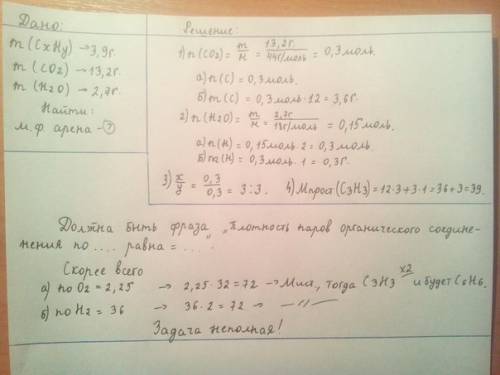 Дано:
m (CxHy) → 3,9г.
m (CO2) → 13,2г.
m (H2O) → 2,7г.
Найти:
м.ф. арена - ?
Решение:
1) n(CO2) = m/M = 13,2г/44г/моль = 0,3 моль.
а) n(C) = 0,3 моль.
б) m(C) = 0,3 моль · 12 = 3,6г.
2) n(H2O) = m/M = 2,7г/18г/моль = 0,15 моль.
а) n(H) = 0,15 моль · 2 = 0,3 моль.
б) m(H) = 0,3 моль · 1 = 0,3г.
3) x/y = 0,3/0,3 = 3:3. 4) Mпрост(C3H3) = 12·3+3·1 = 36+3 = 39.
Должна быть фраза „Плотность паров органического соедине-
нения по .... равна = ....
Скорее всего
а) по O2 = 2,25 → 2,25·32 = 72 → Mист, тогда C3H3 x2 и будет C6H6.
б) по H2 = 36 → 36·2 = 72 → —//—
Задача неполная!